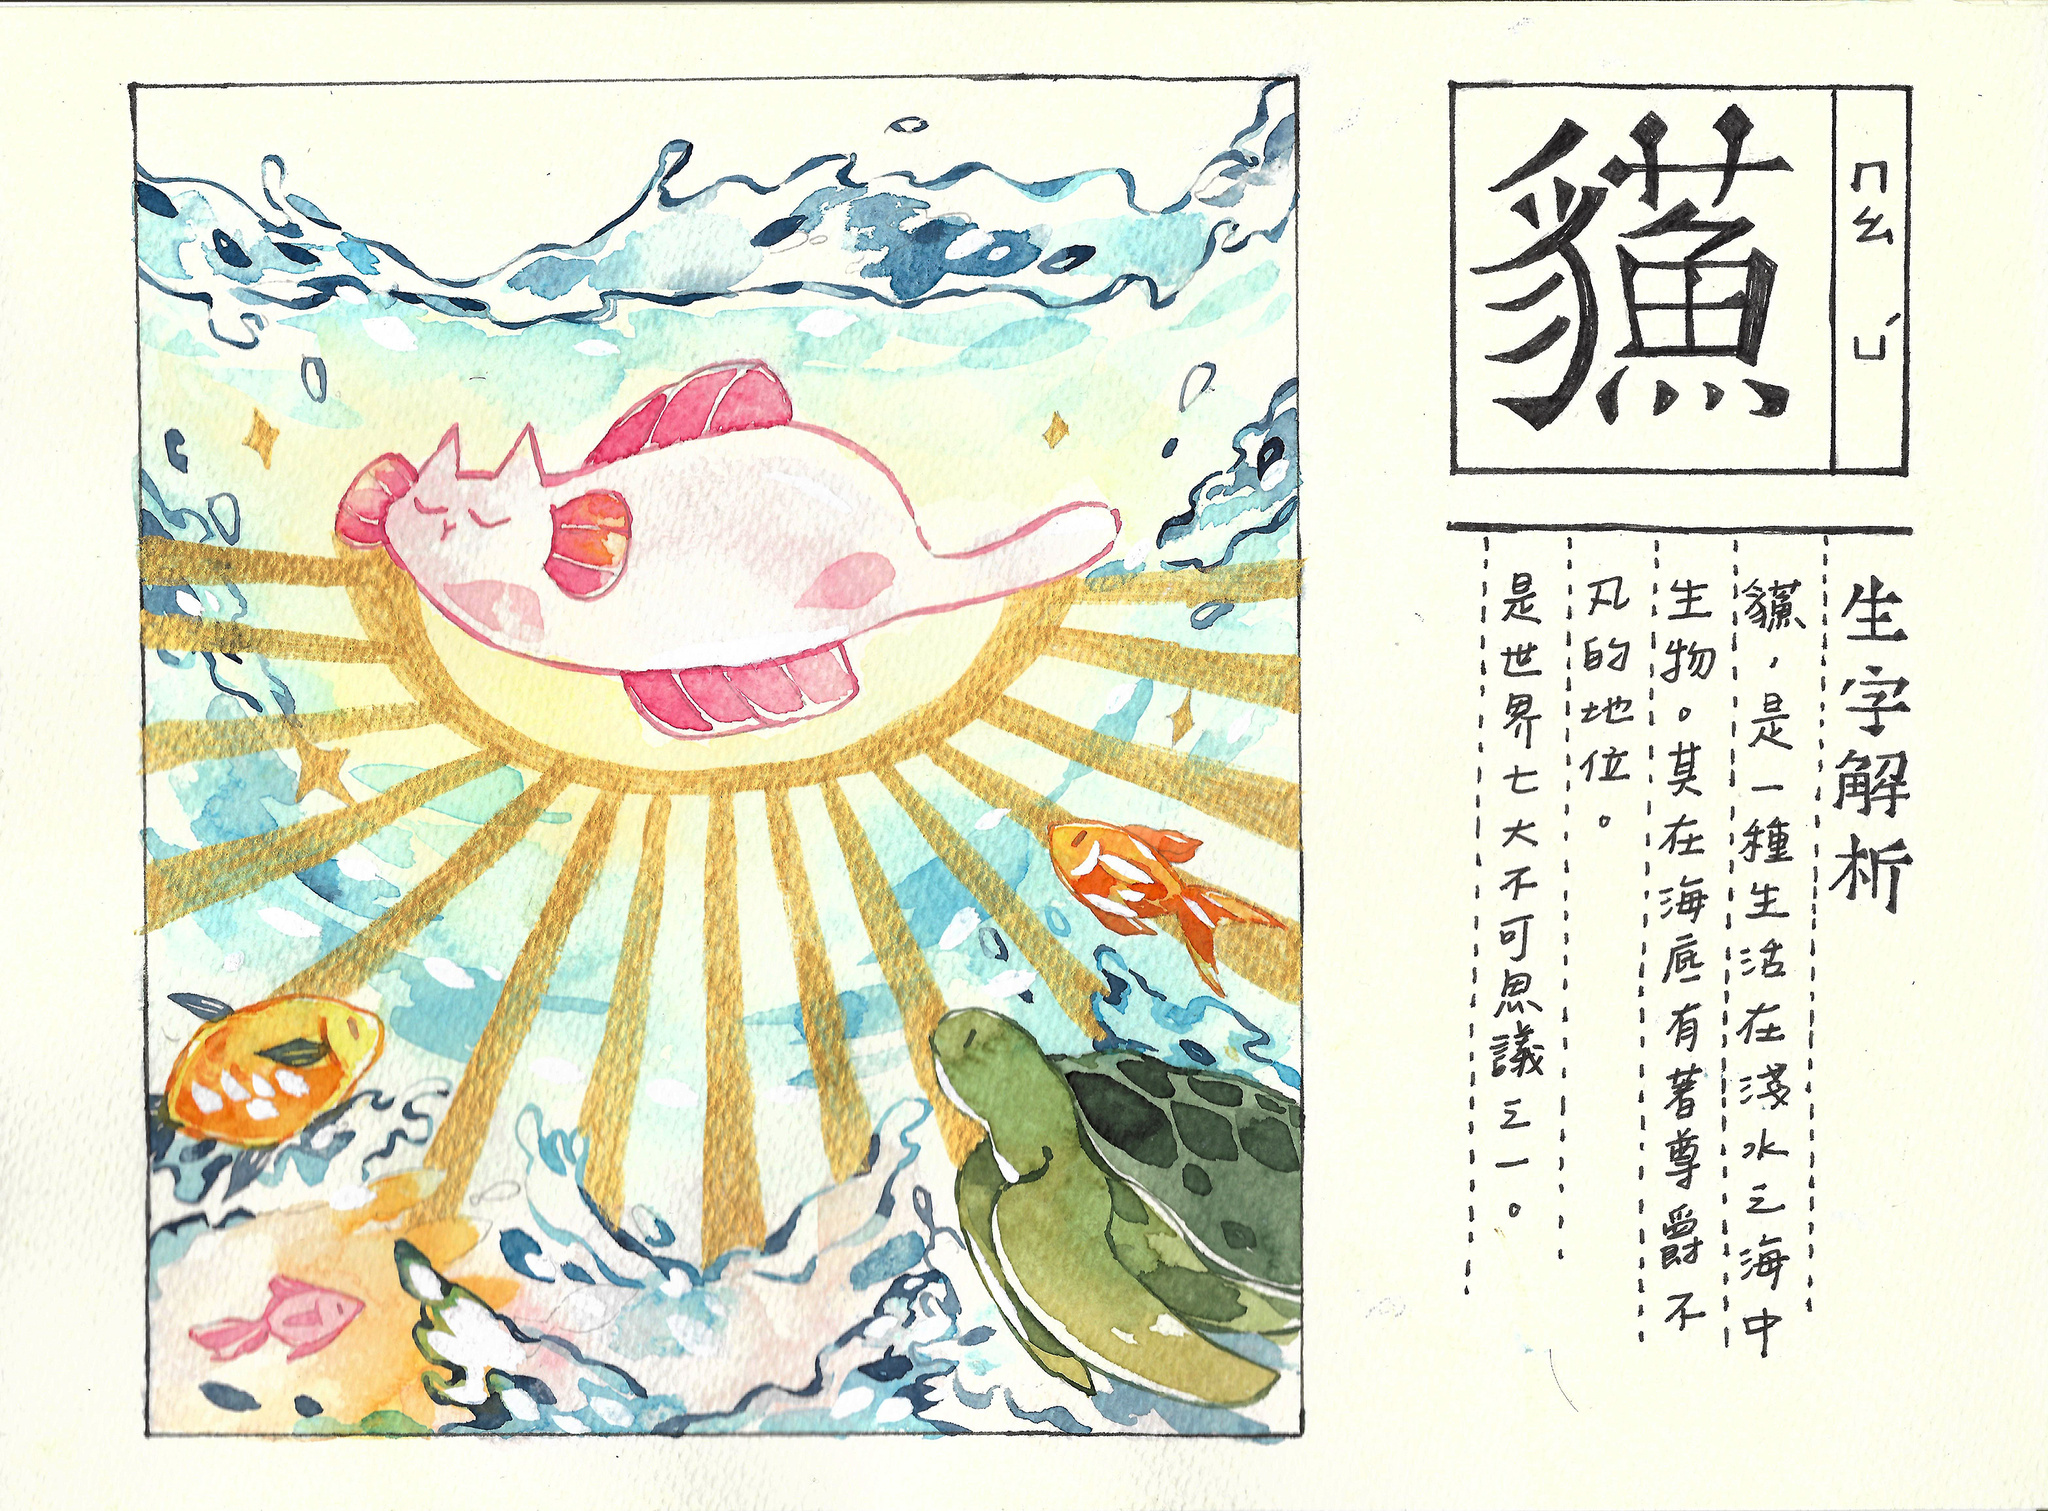 ㄇㄠ ㄩˊ
生字解析
，是一種生活在淺水之海中
生物。其在海底有著尊爵不
凡的地位。
是世界七大不可思議之一。